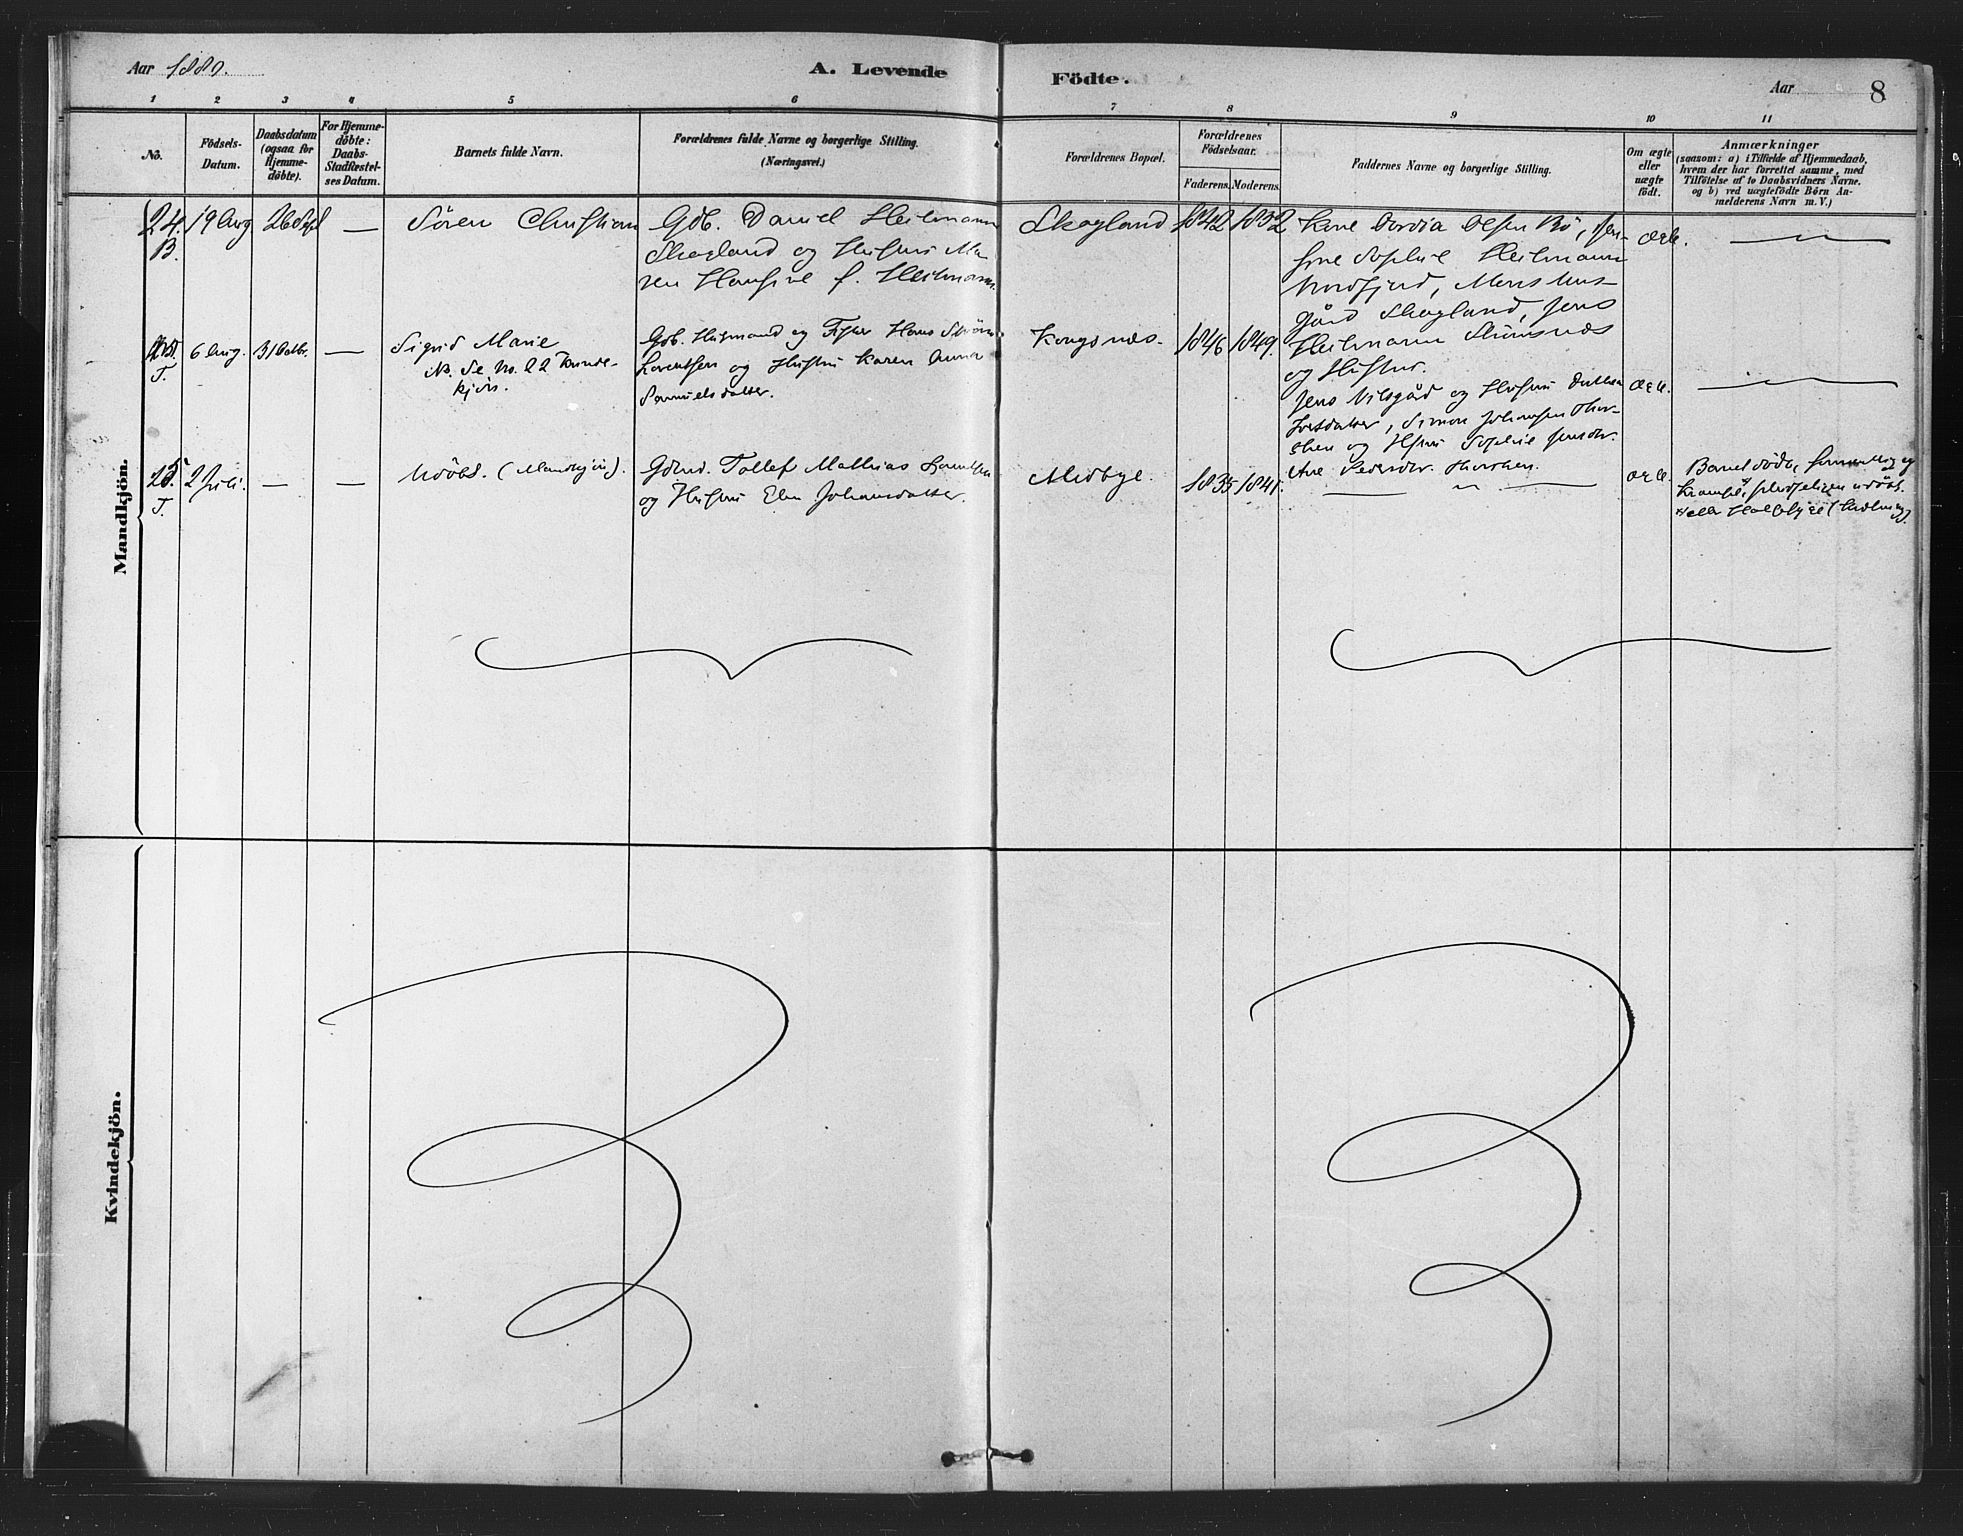 Aar 1880.
A. Levende Födte.
Aar
8
1 2 3 4 5 6 7 8 9 10 11
No.
Födsels-
Datum.
Daabsdatum
(ogsaa for
Hjemme-
döbte).
For Hjemme-
döbte:
Daabs-
Stadfæstel-
ses Datum.
Barnets fulde Navn.
Forældrenes fulde Navne og borgerlige Stilling.
(Næringsvei.)
Forældrenes Bopæl.
Forældrenes
Födselsaar.
Faderens. Moderens.
Faddernes Navne og borgerlige Stilling.
Om ægte
eller
uægte
födt.
Anmærkninger
(saasom: a) i Tilfælde af Hjemmedaab,
hvem der har forrettet samme, med
Tilföielse af to Daabsvidners Navne.
og b) ved uægtefödte Börn An-
melderens Navn m. V.)
Mandkjön.
24.
B.
19 Aug
26 Sept
—
Sören Christian
Gdb. Daniel Heilmann
Skogland og Hustru Ma-
ren Hansine f. Heilmann.
Skogland
1842
1832
Kone Dordia Olsen Bö, Jen-
sine Sophie Heilmann
Nordfjord, Mons Mons-
gård Skogland, Jens
Heilmann Strømsnæs
og Hustru.
ægte.
T.
6 Aug.
31 Octbr.
—
Sigrid Marie
N. Se No. 22 Kvinde-
kjön.
Gdb. Husmand og Fisker Hans
Lorentsen og Hustru Karen Anna
Samuelsdatter.
Kongsnæs.
1846
1849.
Jens Nilsgård og Hustru
Simon Johansen Thor-
shen og Hstru Sophie Jensdr.
Ane Pedersdr. Thorshen.
ægte.
25
T.
2 Juli.
—
—
Udöbt. (Mandkjön).
Gdmd. Tollef Mathias Lorentsen
og Hustru Elen Johansdatter.
Medbye.
1835
1841.
ægte.
Barnet döde,
Krampe, pludseligen udöbt.
Kvindekjön.